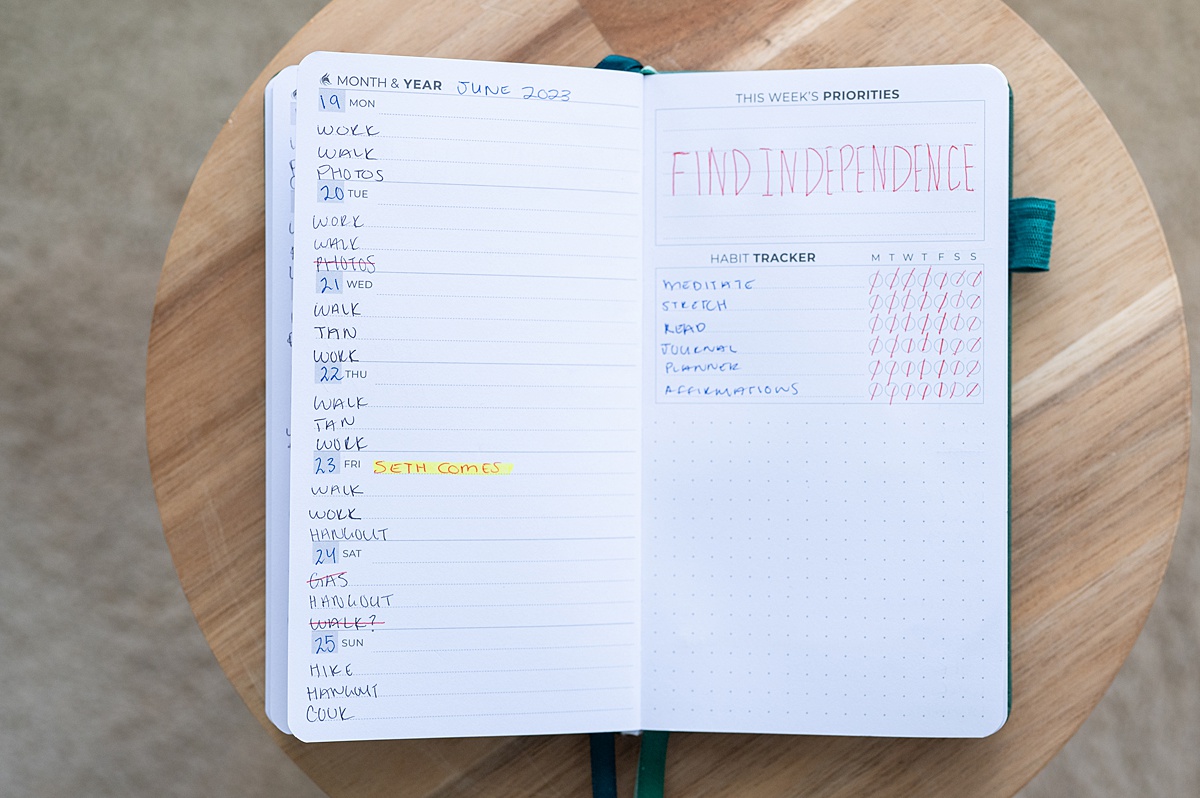 MONTH & YEAR JUNE 2023
19 MON
WORK
WALK
PHOTOS
20 TUE
WORK
WALK
PHOTOS
21 WED
WALK
TAN
WORK
22 THU
WALK
TAN
WORK
23 FRI SETH COMES
WALK
WORK
HANGOUT
24 SAT
GAS
HANGOUT
WALK?
25 SUN
HIKE
HANGOUT
COOK
THIS WEEK'S PRIORITIES
FIND INDEPENDENCE
HABIT TRACKER M T W T F S S
MEDITATE
STRETCH
READ
JOURNAL
PLANNER
AFFIRMATIONS